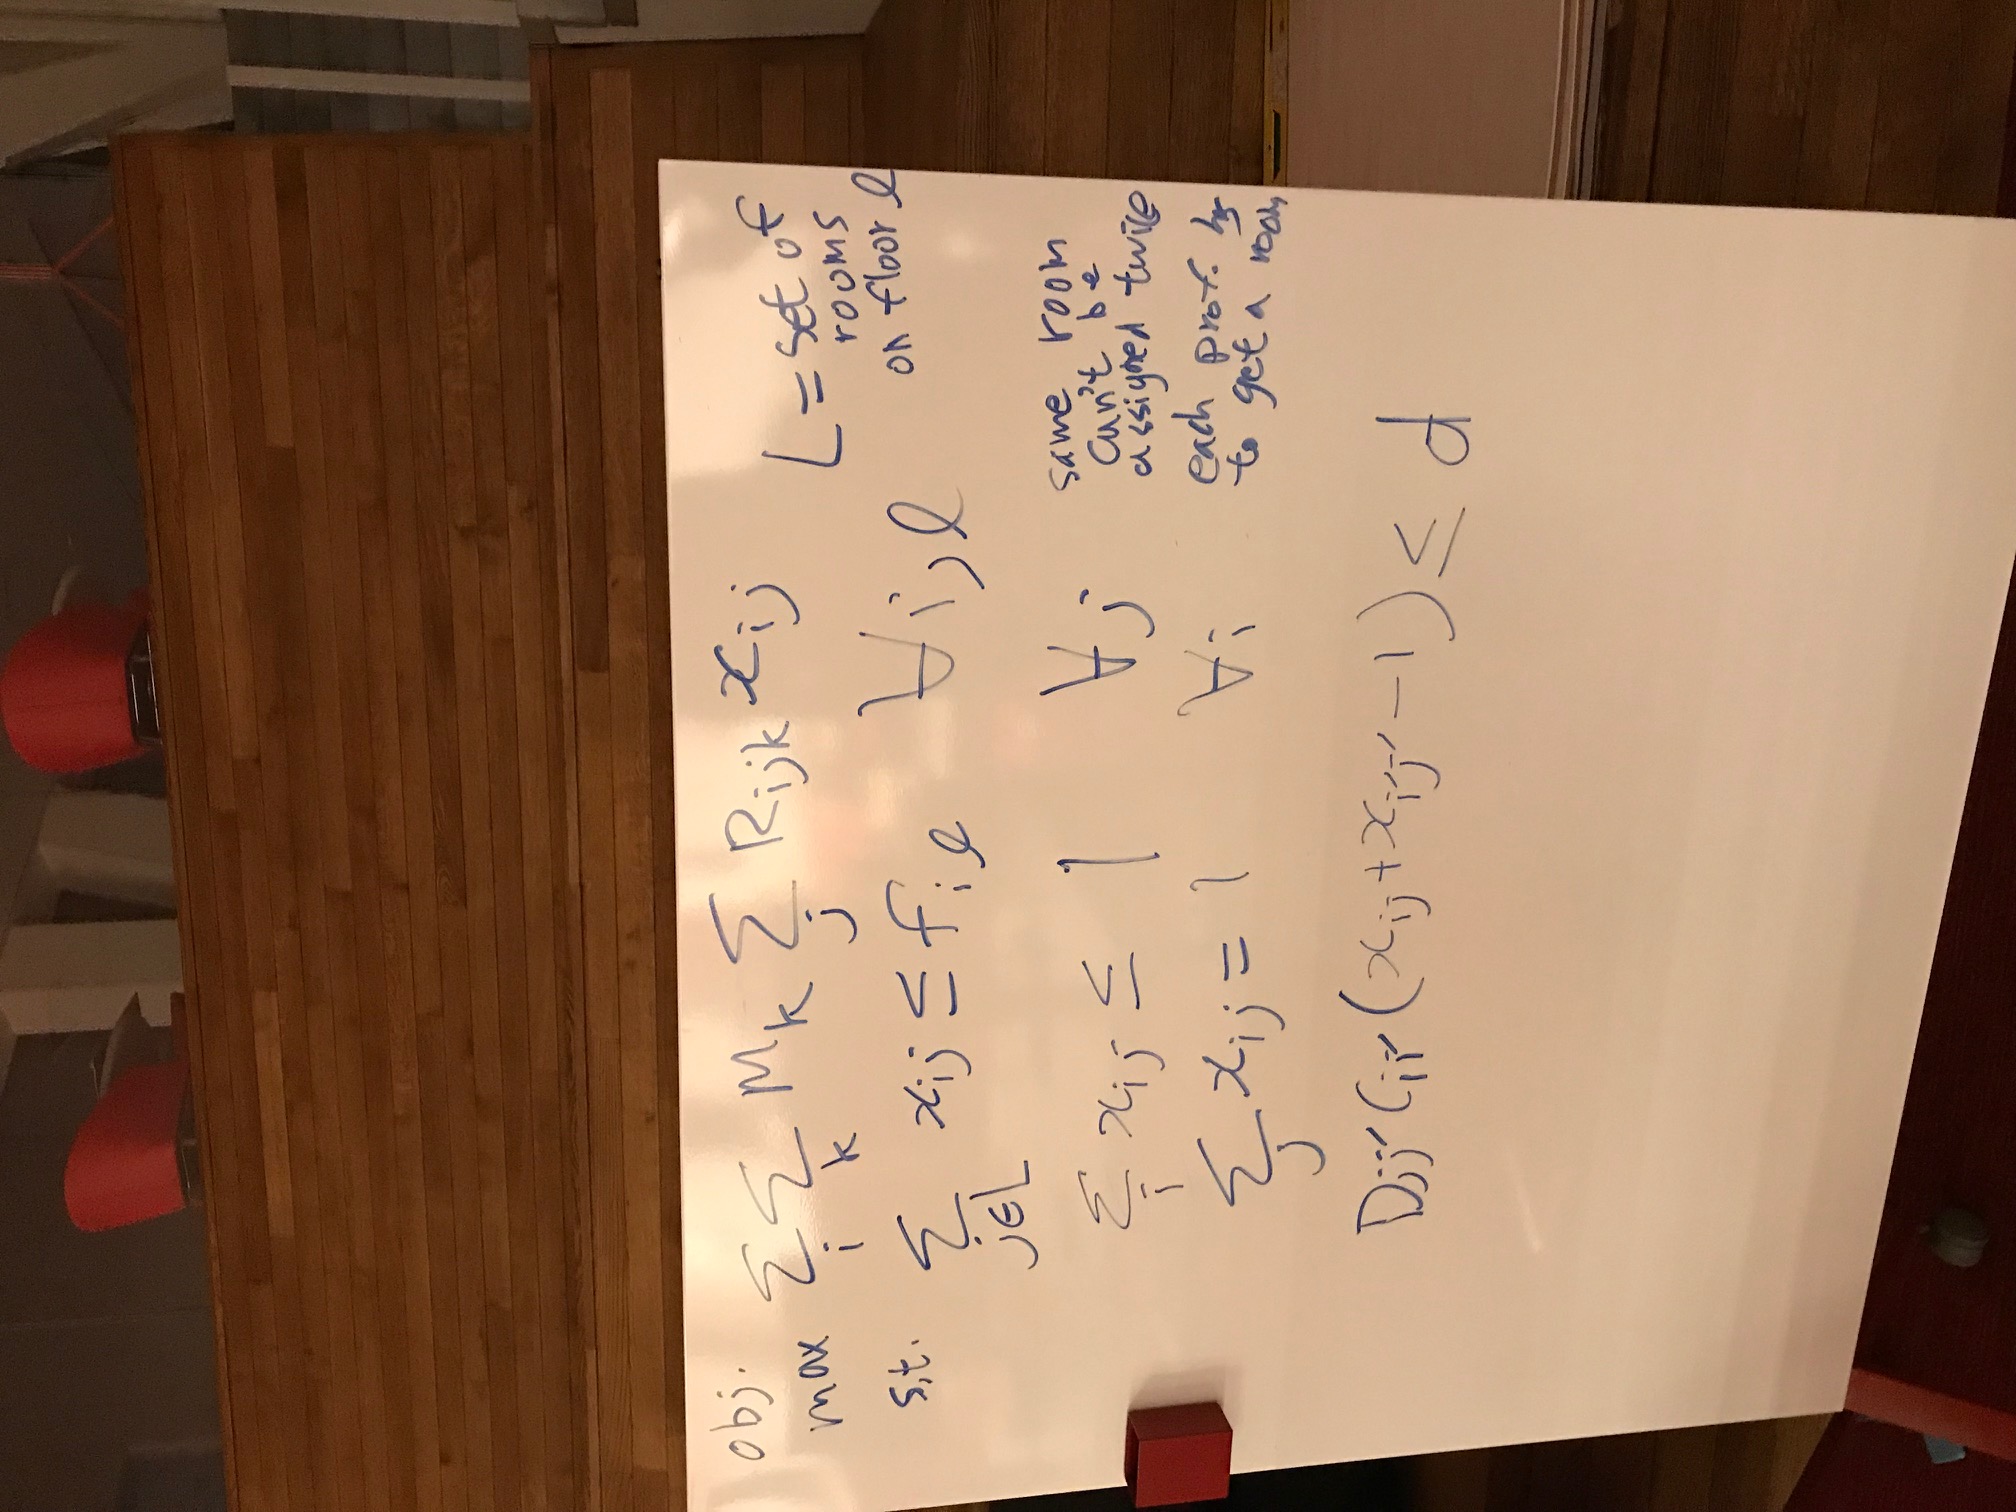 obj.
max ∑_i ∑_k M_k ∑_j R_ijk x_ij
L = set of
rooms
on floor ℓ
s.t.
∑_{j∈L} x_ij ≤ f_iℓ ∀i,ℓ
∑_i x_ij ≤ 1 ∀j
same room
can't be
assigned twice
∑_j x_ij = 1 ∀i
each prof. has
to get a room
D_jj′ C_ii′ (x_ij + x_i′j′ − 1) ≤ d